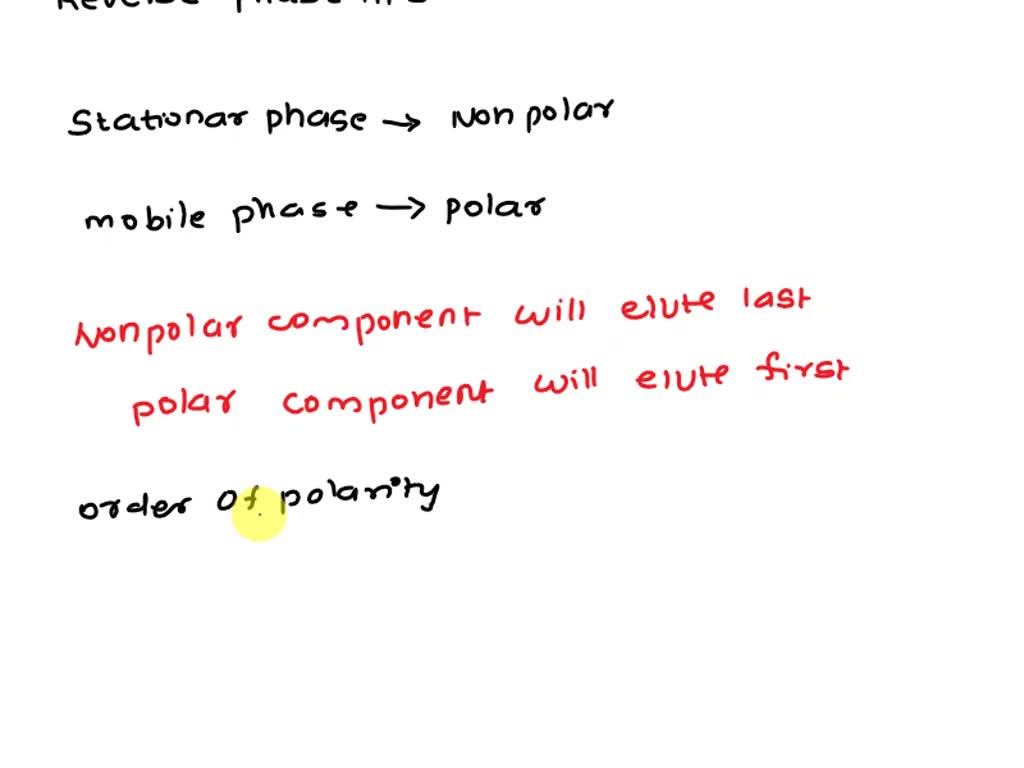 Reverse phase HPL
Stationar phase → Non polar
mobile phase → polar
Nonpolar component will elute last
polar component will elute first
order of polarity